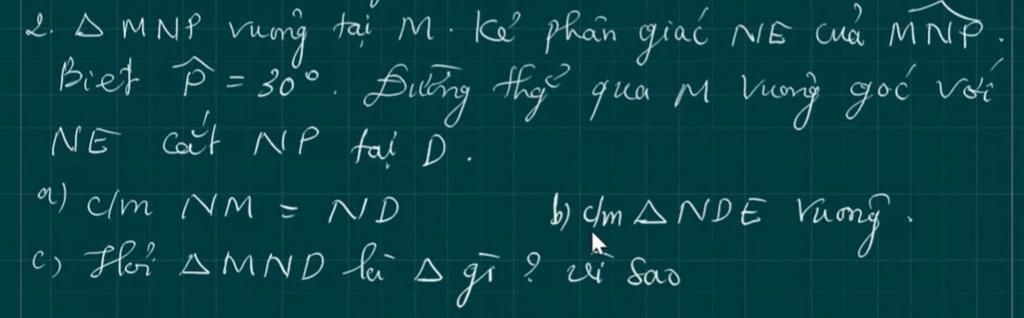 2. Δ MNP vuông tại M. Kẻ phân giác NE của \widehat{MNP}.
Biết \widehat{P} = 30°. Đường thg² qua M vuông góc với
NE cắt NP tại D.
a) c/m NM = ND b) c/m Δ NDE vuông.
c) Hỏi Δ MND là Δ gì? vì sao